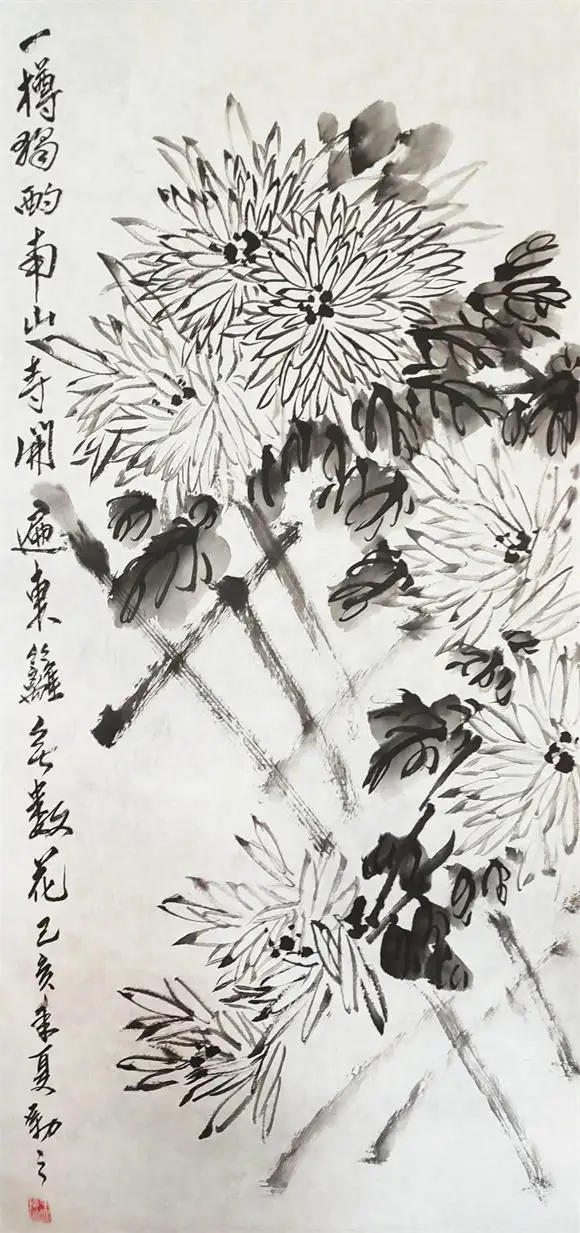 一樽獨酌南山寿開遍東籬無数花己亥季夏勤之